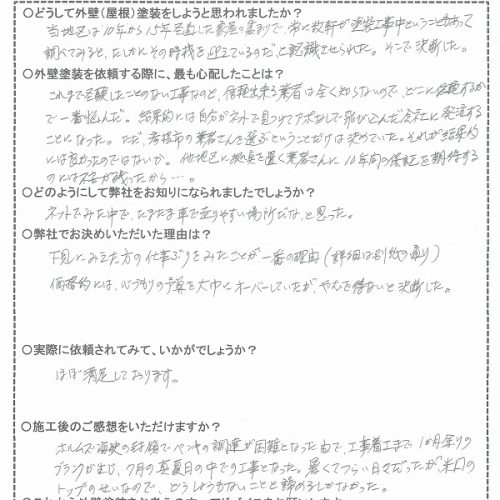 〇どうして外壁(屋根)塗装をしようと思われましたか?
当地区は10年から15年経過した家屋の集まりで、常に数軒が塗装工事中ということもあって
調べてみると、たしかにその時機を迎えているのだ、と認識させられた。そこで決断した。
〇外壁塗装を依頼する際に、最も心配したことは?
これまで経験したことのない工事なので、信頼出来る業者は全く知らないので、どこに依頼するか
で一番悩んだ。結果的には自分がネットで見つけてアポなしで飛び込んだ会社に発注する
ことになった。ただ、の業者さんを選ぶということだけは決めていた。それが結果的
には良かったのではないか。他地区に拠点を置く業者さんに10年間の保証を期待する
のには不安が残ったから…。
〇どのようにして弊社をお知りになられましたでしょうか?
ネットでみた中で、たまたま車で走りやすい場所だな、と思った。
〇弊社でお決めいただいた理由は?
下見にみえた方の仕事ぶりをみたことが一番の理由(詳細は別紙の通り)
価格的には、心づもりの予算を大巾にオーバーしていたが、やむを得ないと決断した。
〇実際に依頼されてみて、いかがでしょうか?
ほぼ満足しております。
〇施工後のご感想をいただけますか?
ホルムズ海峡の封鎖でペンキの調達が困難となった由で、工事着工まで1か月余りの
ブランクがあり、7月の真夏日の中での工事となった。暑くてつらい日々だったが、米国の
トップのせいなので、どうしようもないことと諦めるしかなかった。